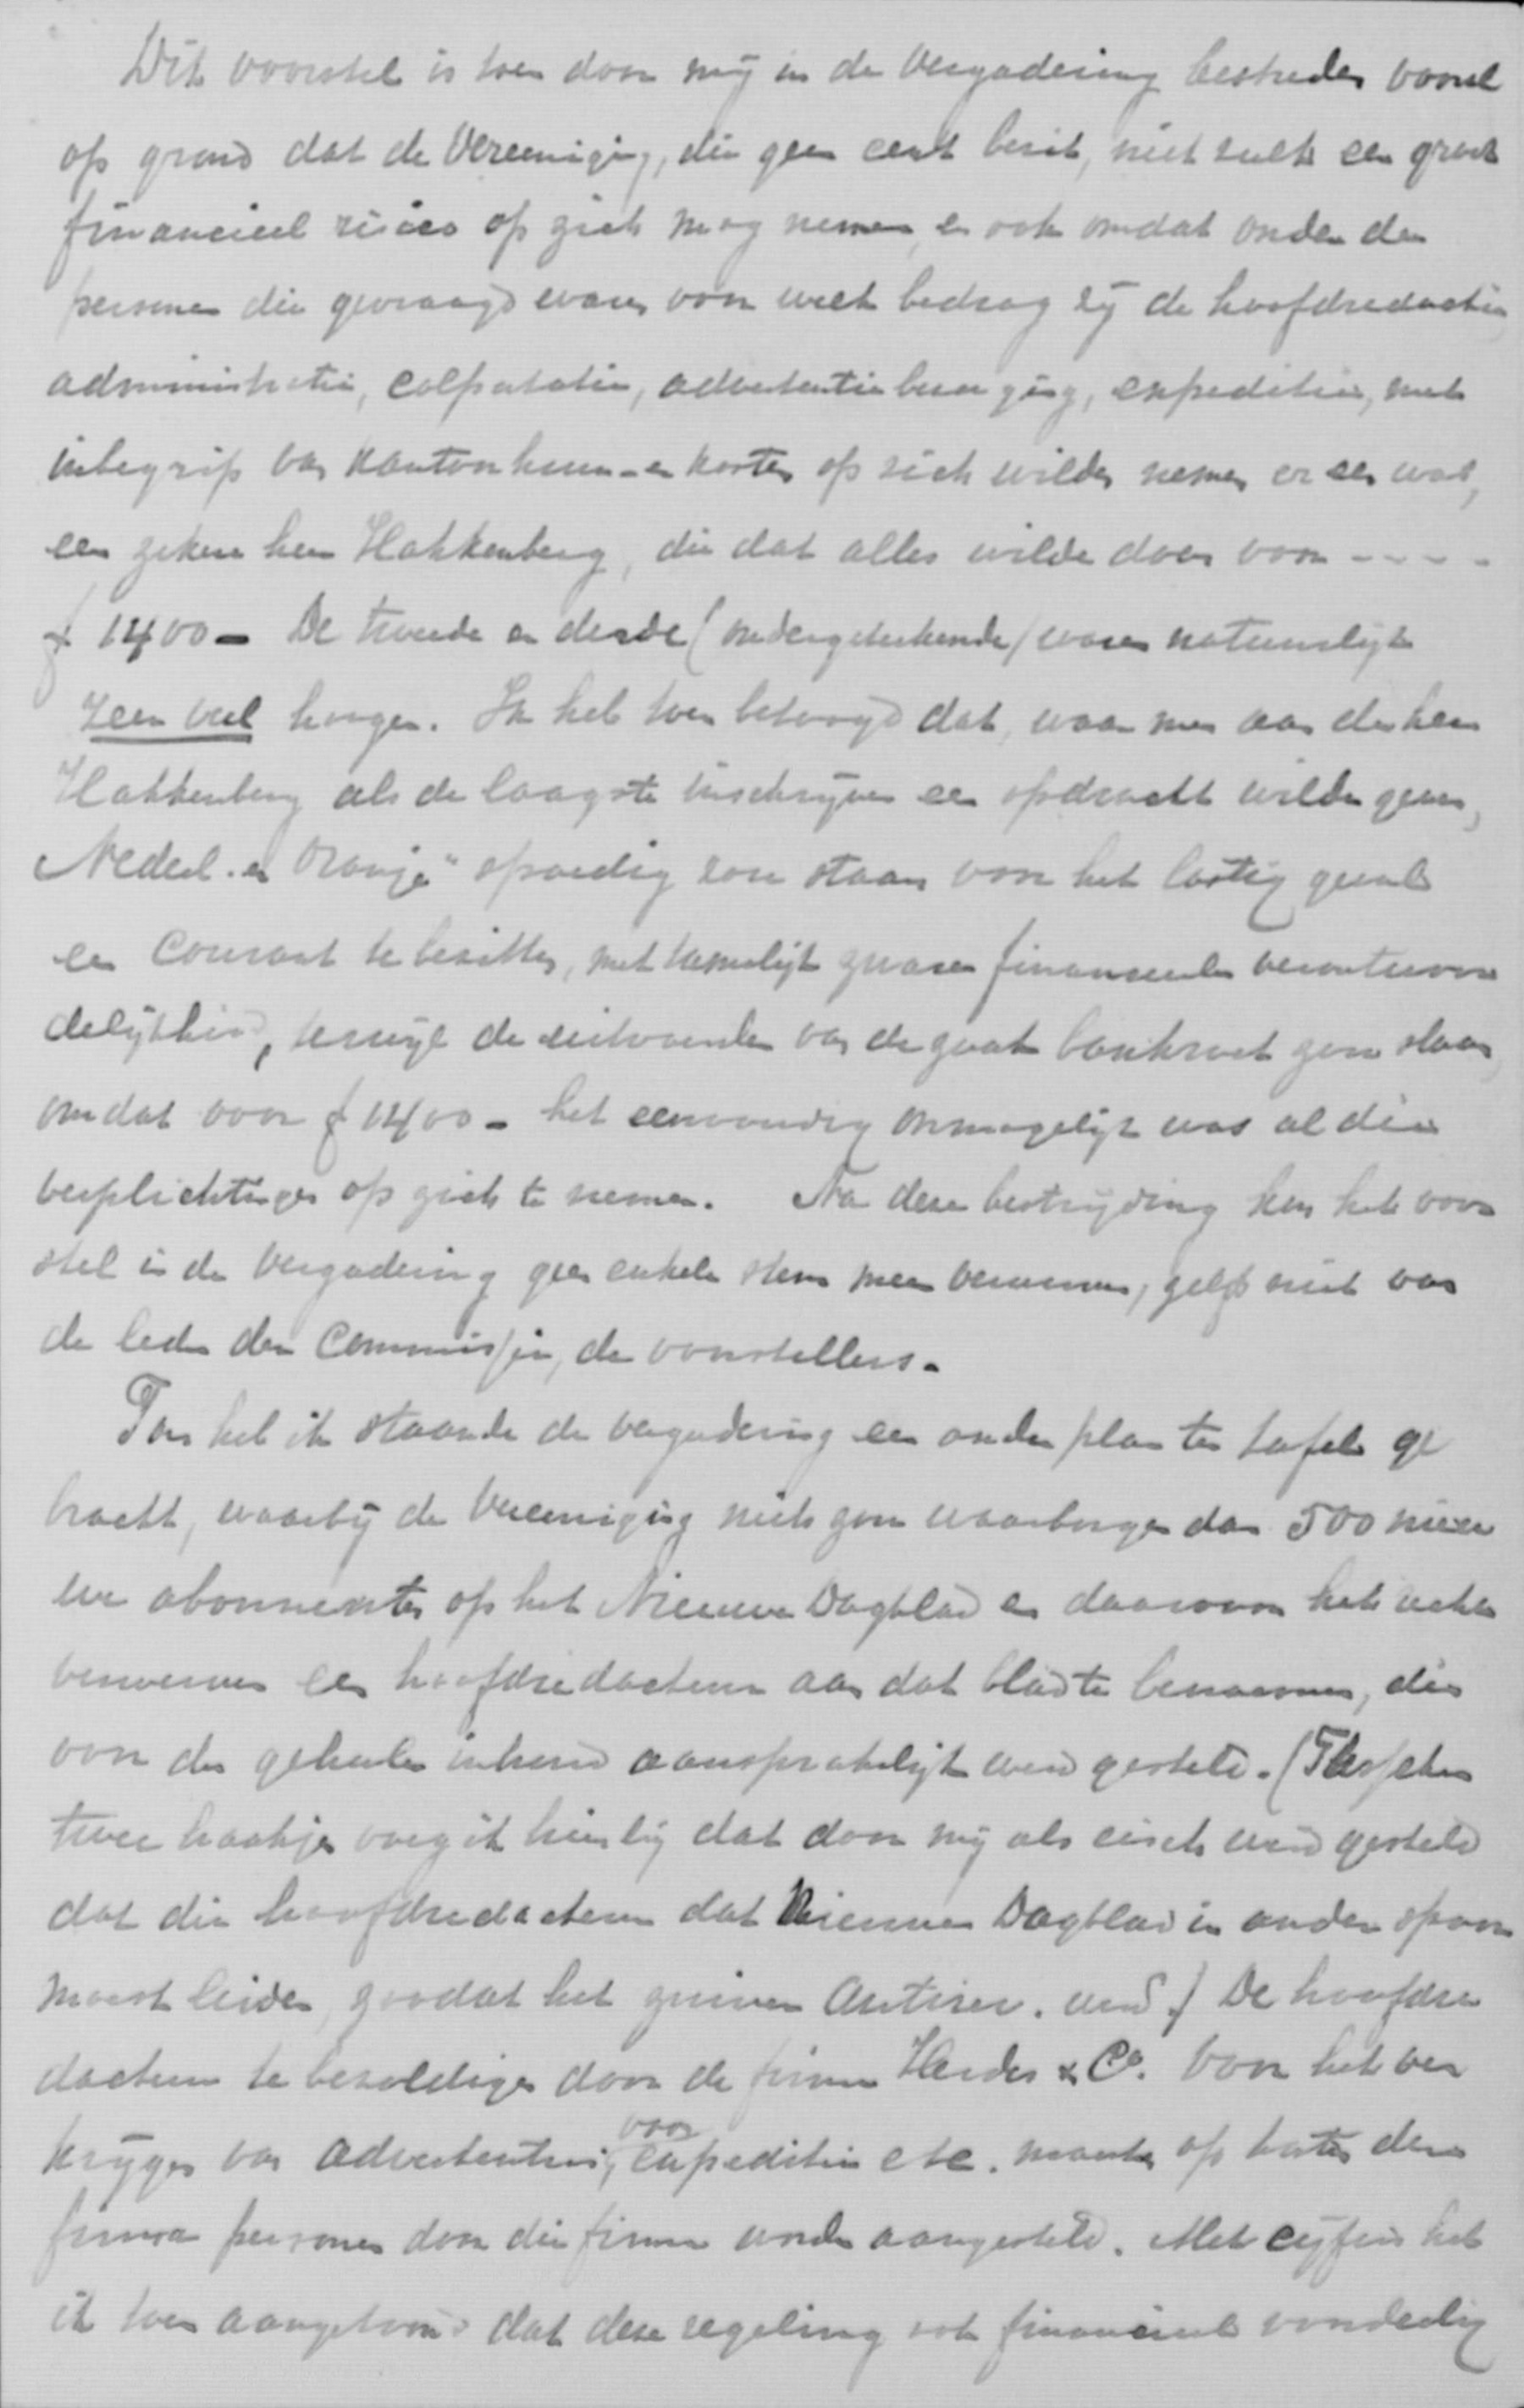 Dit voorstel is toen door mij in de Vergadering bestreden vooral
op grond dat de Vereeniging, die geen cent bezit, niet zulk een groot
financieel risico op zich mag nemen, en ook omdat onder de
personen die gevraagd waren voor welk bedrag zij de hoofdredactie
administratie, colportatie, advertentiebezorging, expeditie, met
inbegrip van kantoorhuur- en kosten op zich wilden nemen er een was,
een zekere heer Hakkenberg, die dat alles wilde doen voor - - - -
f 1400 - De tweede en derde (ondergeteekende) waren natuurlijk
zeer veel hooger. Ik heb toen betoogd dat, waar men aan den heer
Hakkenberg als de laagste inschrijver een opdracht wilde geven,
Nederl. en Oranje" spoedig zou staan voor het lastig geval
een Courant te bezitten, met tamelijk zware financieele verantwoor
delijkheid, terwijl de uitvoerder van de zaak bankroet zou slaan,
omdat voor f 1400 - het eenvoudig onmogelijk was al die
verplichtingen op zich te nemen. Na deze bestrijding kon het voor
stel in de Vergadering geen enkele stem meer verwerven, zelfs niet van
de leden der Commissie, de voorstellers.
Toen heb ik staande de vergadering een ander plan ter tafel ge
bracht, waarbij de Vereeniging niets zou waarborgen dan 500 nieu
we abonnenten op het Nieuwe Dagblad en daarvoor het recht
verwerven een hoofdredacteur aan dat blad te benoemen, die
voor den geheelen inhoud aansprakelijk werd gesteld. (Tusschen
twee haakjes voeg ik hierbij dat door mij als eisch werd gesteld
dat die hoofdredacteur dat Nieuwe Dagblad in ander spoor
moest leiden, zoodat het zuiver Antirev. werd.) De hoofdre
dacteur te bezoldigen door de firma Herdes & Co. Voor het ver
krijgen van advertentiën, voor expeditie etc. moeten op kosten der
firma personen door die firma worden aangesteld. Met cijfers heb
ik toen aangetoond dat deze regeling ook financieel voordeelig